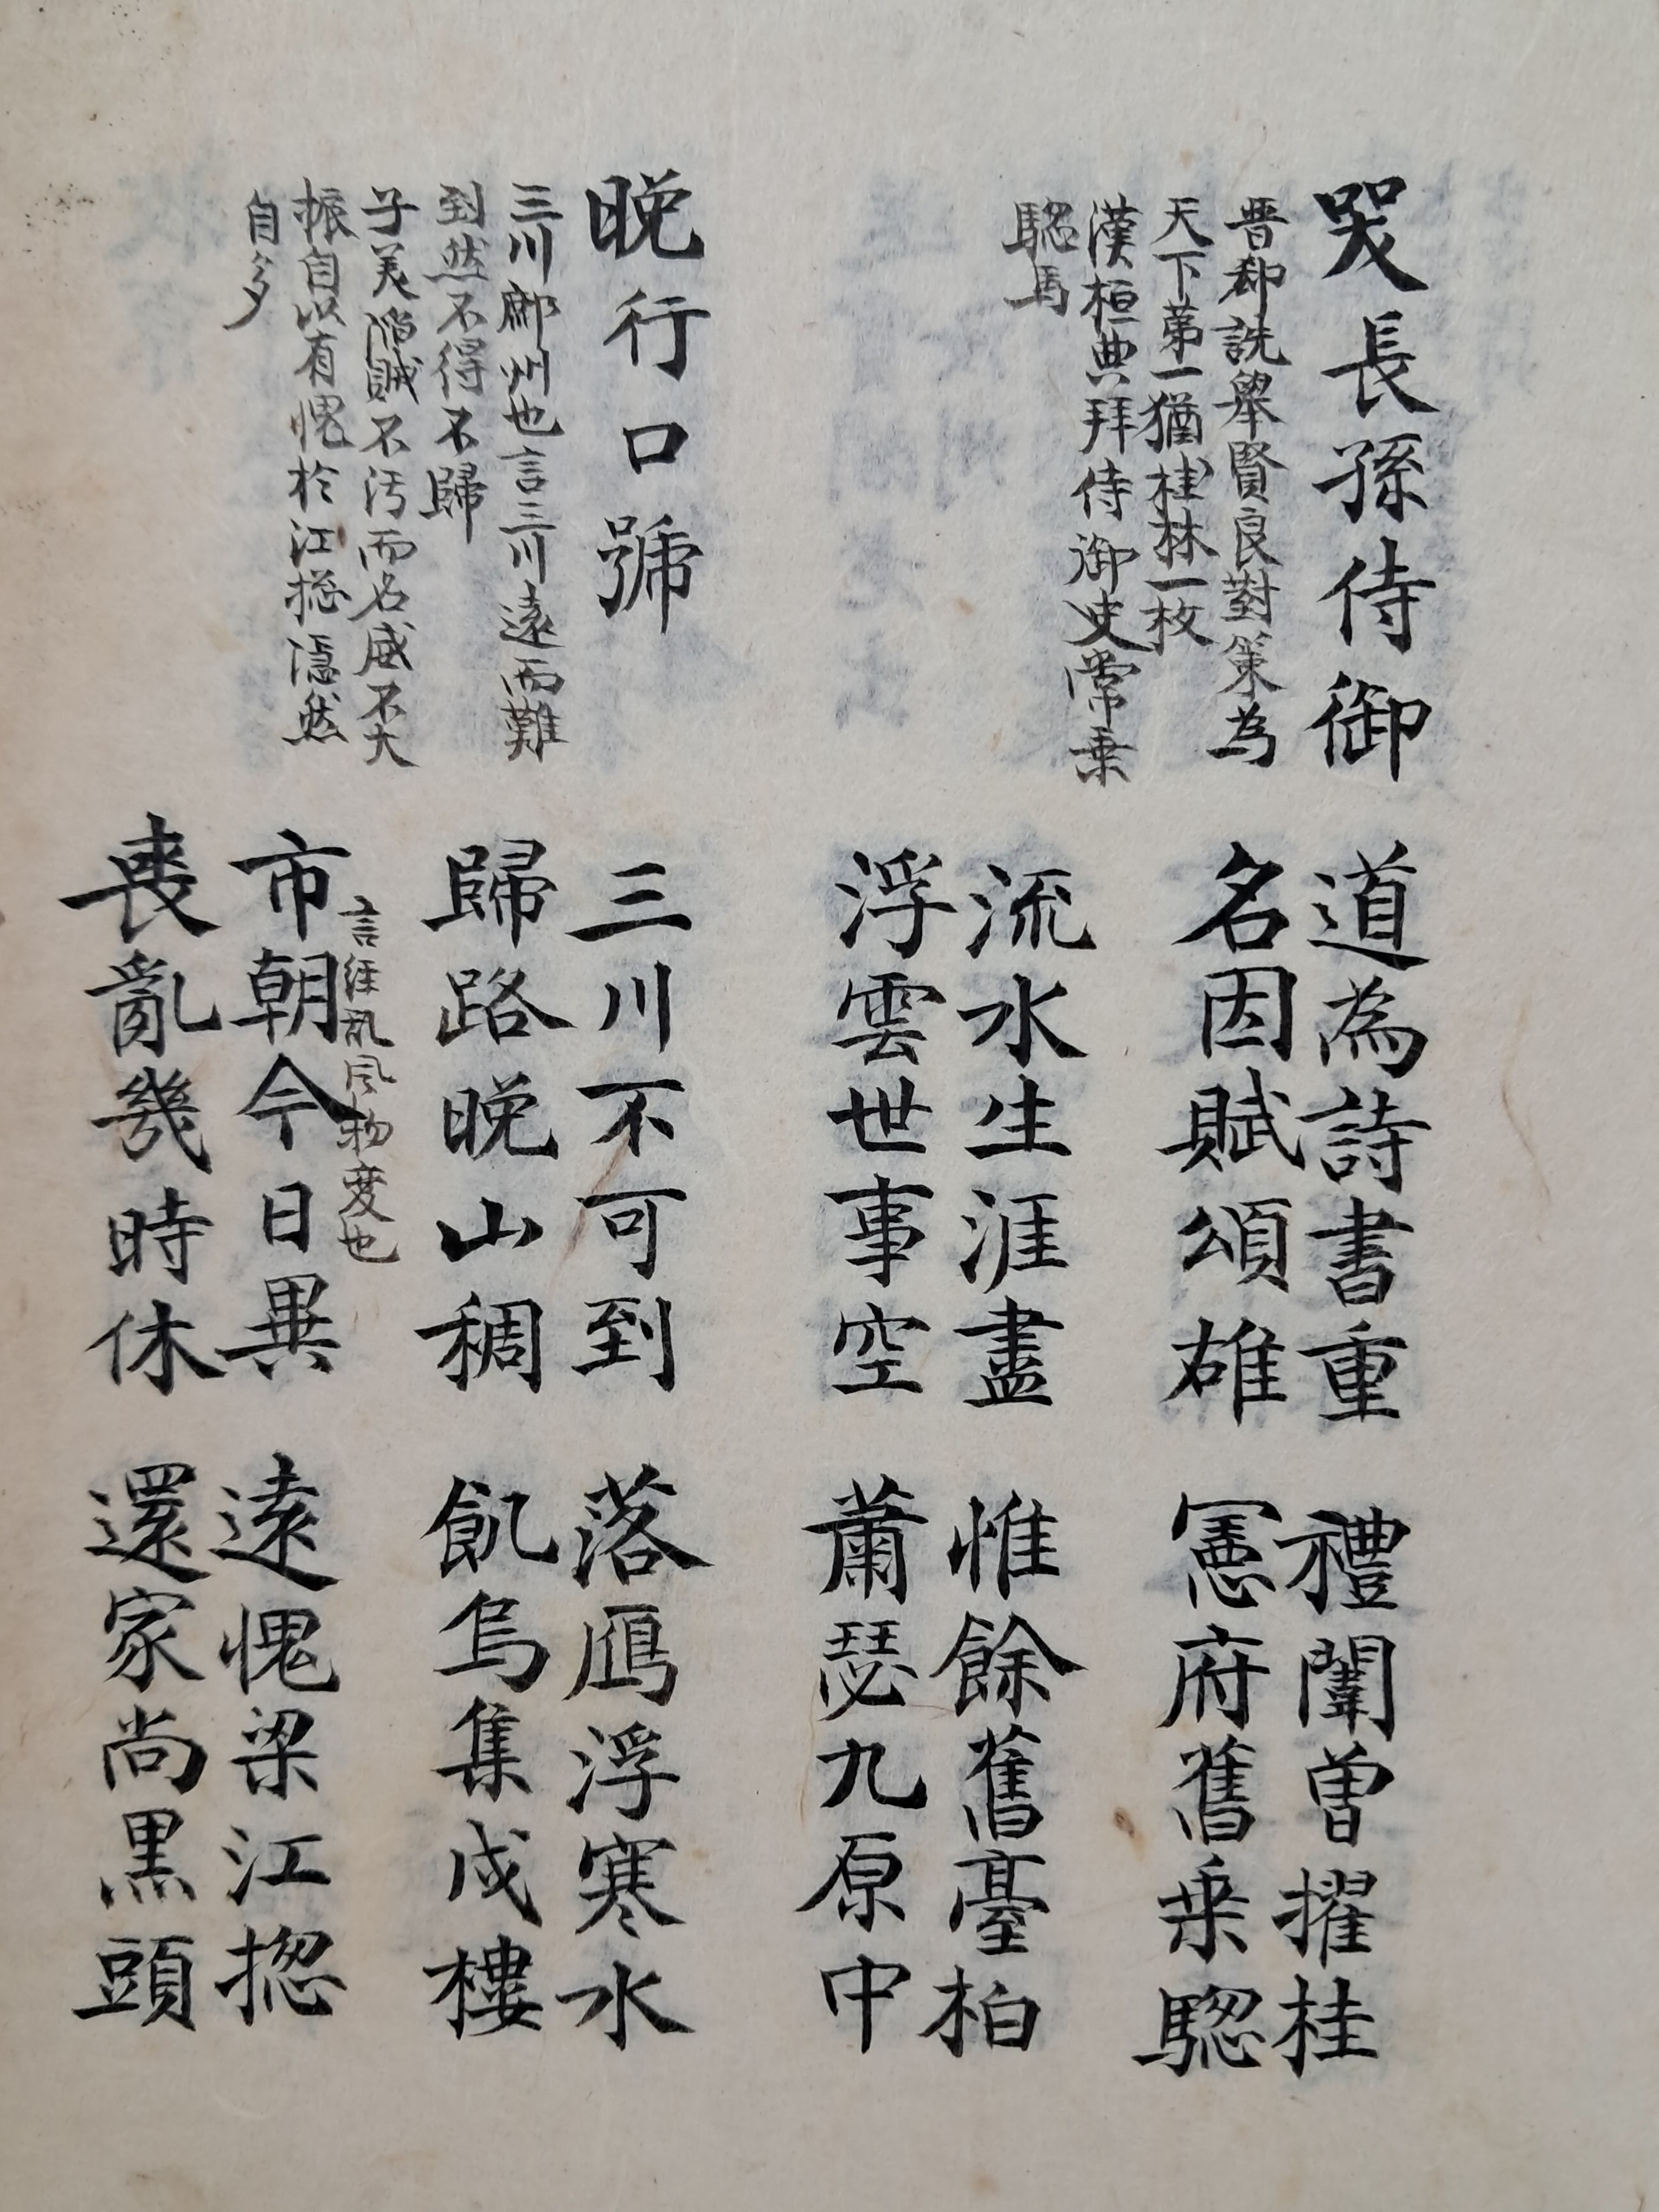 哭長孫侍御
晋郤詵舉賢良對策為
天下第一猶桂林一枚
漢桓典拜侍御史常乗
驄馬
道為詩書重
名因賦頌雄
禮闈曽擢桂
憲府舊乗驄
流水生涯盡
浮雲世事空
惟餘舊臺柏
蕭瑟九原中
晩行口號
三川鄜州也言三川遠而難
到然不得不歸
子美陷賊不汚而名威不大
振自以有愧於江揔隱然
自多
三川不可到
歸路晩山稠
落鴈浮寒水
飢烏集戍樓
言経乱風物变也
市朝今日異
喪亂幾時休
遠愧梁江揔
還家尚黒頭